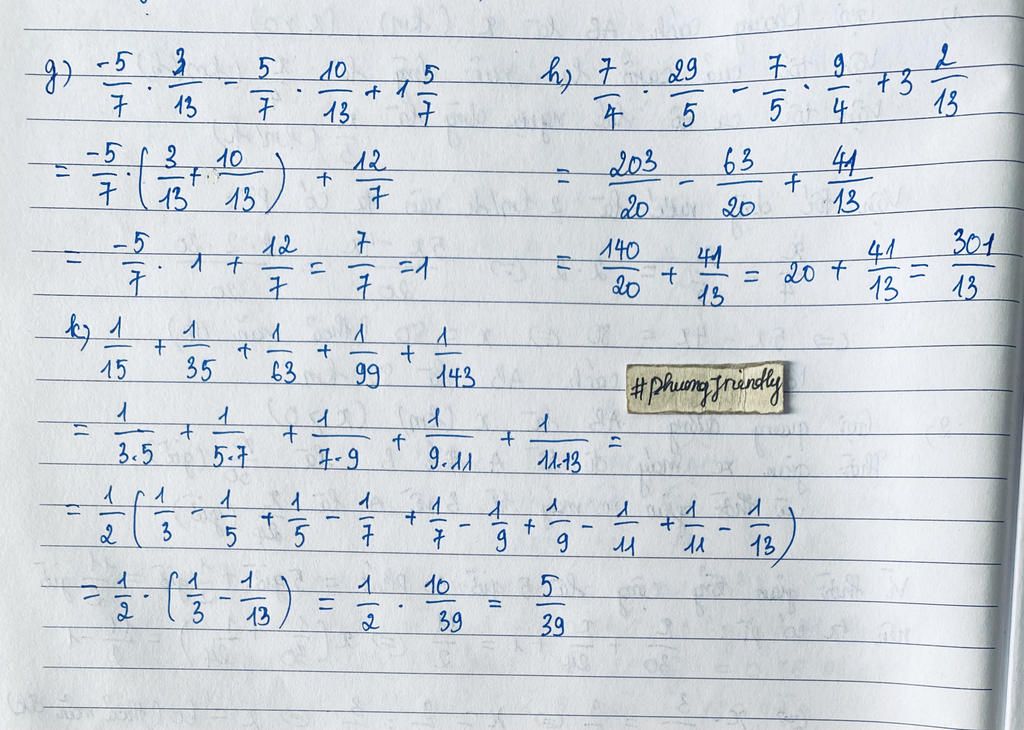 g) -5/7 . 3/13 - 5/7 . 10/13 + 1 5/7
= -5/7 . (3/13 + 10/13) + 12/7
= -5/7 . 1 + 12/7 = 7/7 = 1
h) 7/4 . 29/5 - 7/5 . 9/4 + 3 2/13
= 203/20 - 63/20 + 41/13
= 140/20 + 41/13 = 20 + 41/13 = 301/13
k) 1/15 + 1/35 + 1/63 + 1/99 + 1/143
= 1/3.5 + 1/5.7 + 1/7.9 + 1/9.11 + 1/11.13 =
= 1/2 (1/3 - 1/5 + 1/5 - 1/7 + 1/7 - 1/9 + 1/9 - 1/11 + 1/11 - 1/13)
= 1/2 . (1/3 - 1/13) = 1/2 . 10/39 = 5/39
#phuongfriendly